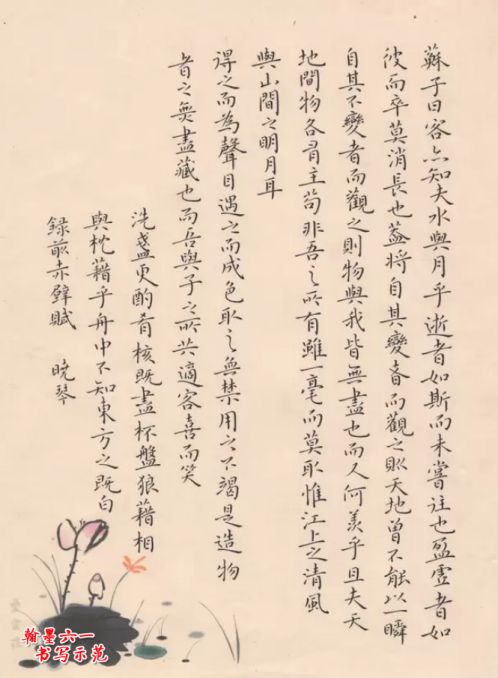 蘇子曰客亦知夫水與月乎逝者如斯而未嘗往也盈虛者如
彼而卒莫消長也蓋將自其變者而觀之則天地曾不能以一瞬
自其不變者而觀之則物與我皆無盡也而又何羨乎且夫天
地間物各有主苟非吾之所有雖一毫而莫取惟江上之清風
與山間之明月耳
得之而為聲目遇之而成色取之無禁用之不竭是造物
者之無盡藏也而吾與子之所共適客喜而笑
洗盞更酌肴核既盡杯盤狼藉相
與枕藉乎舟中不知東方之既白
録前赤壁賦 曉琴
翰墨六一
书写示范